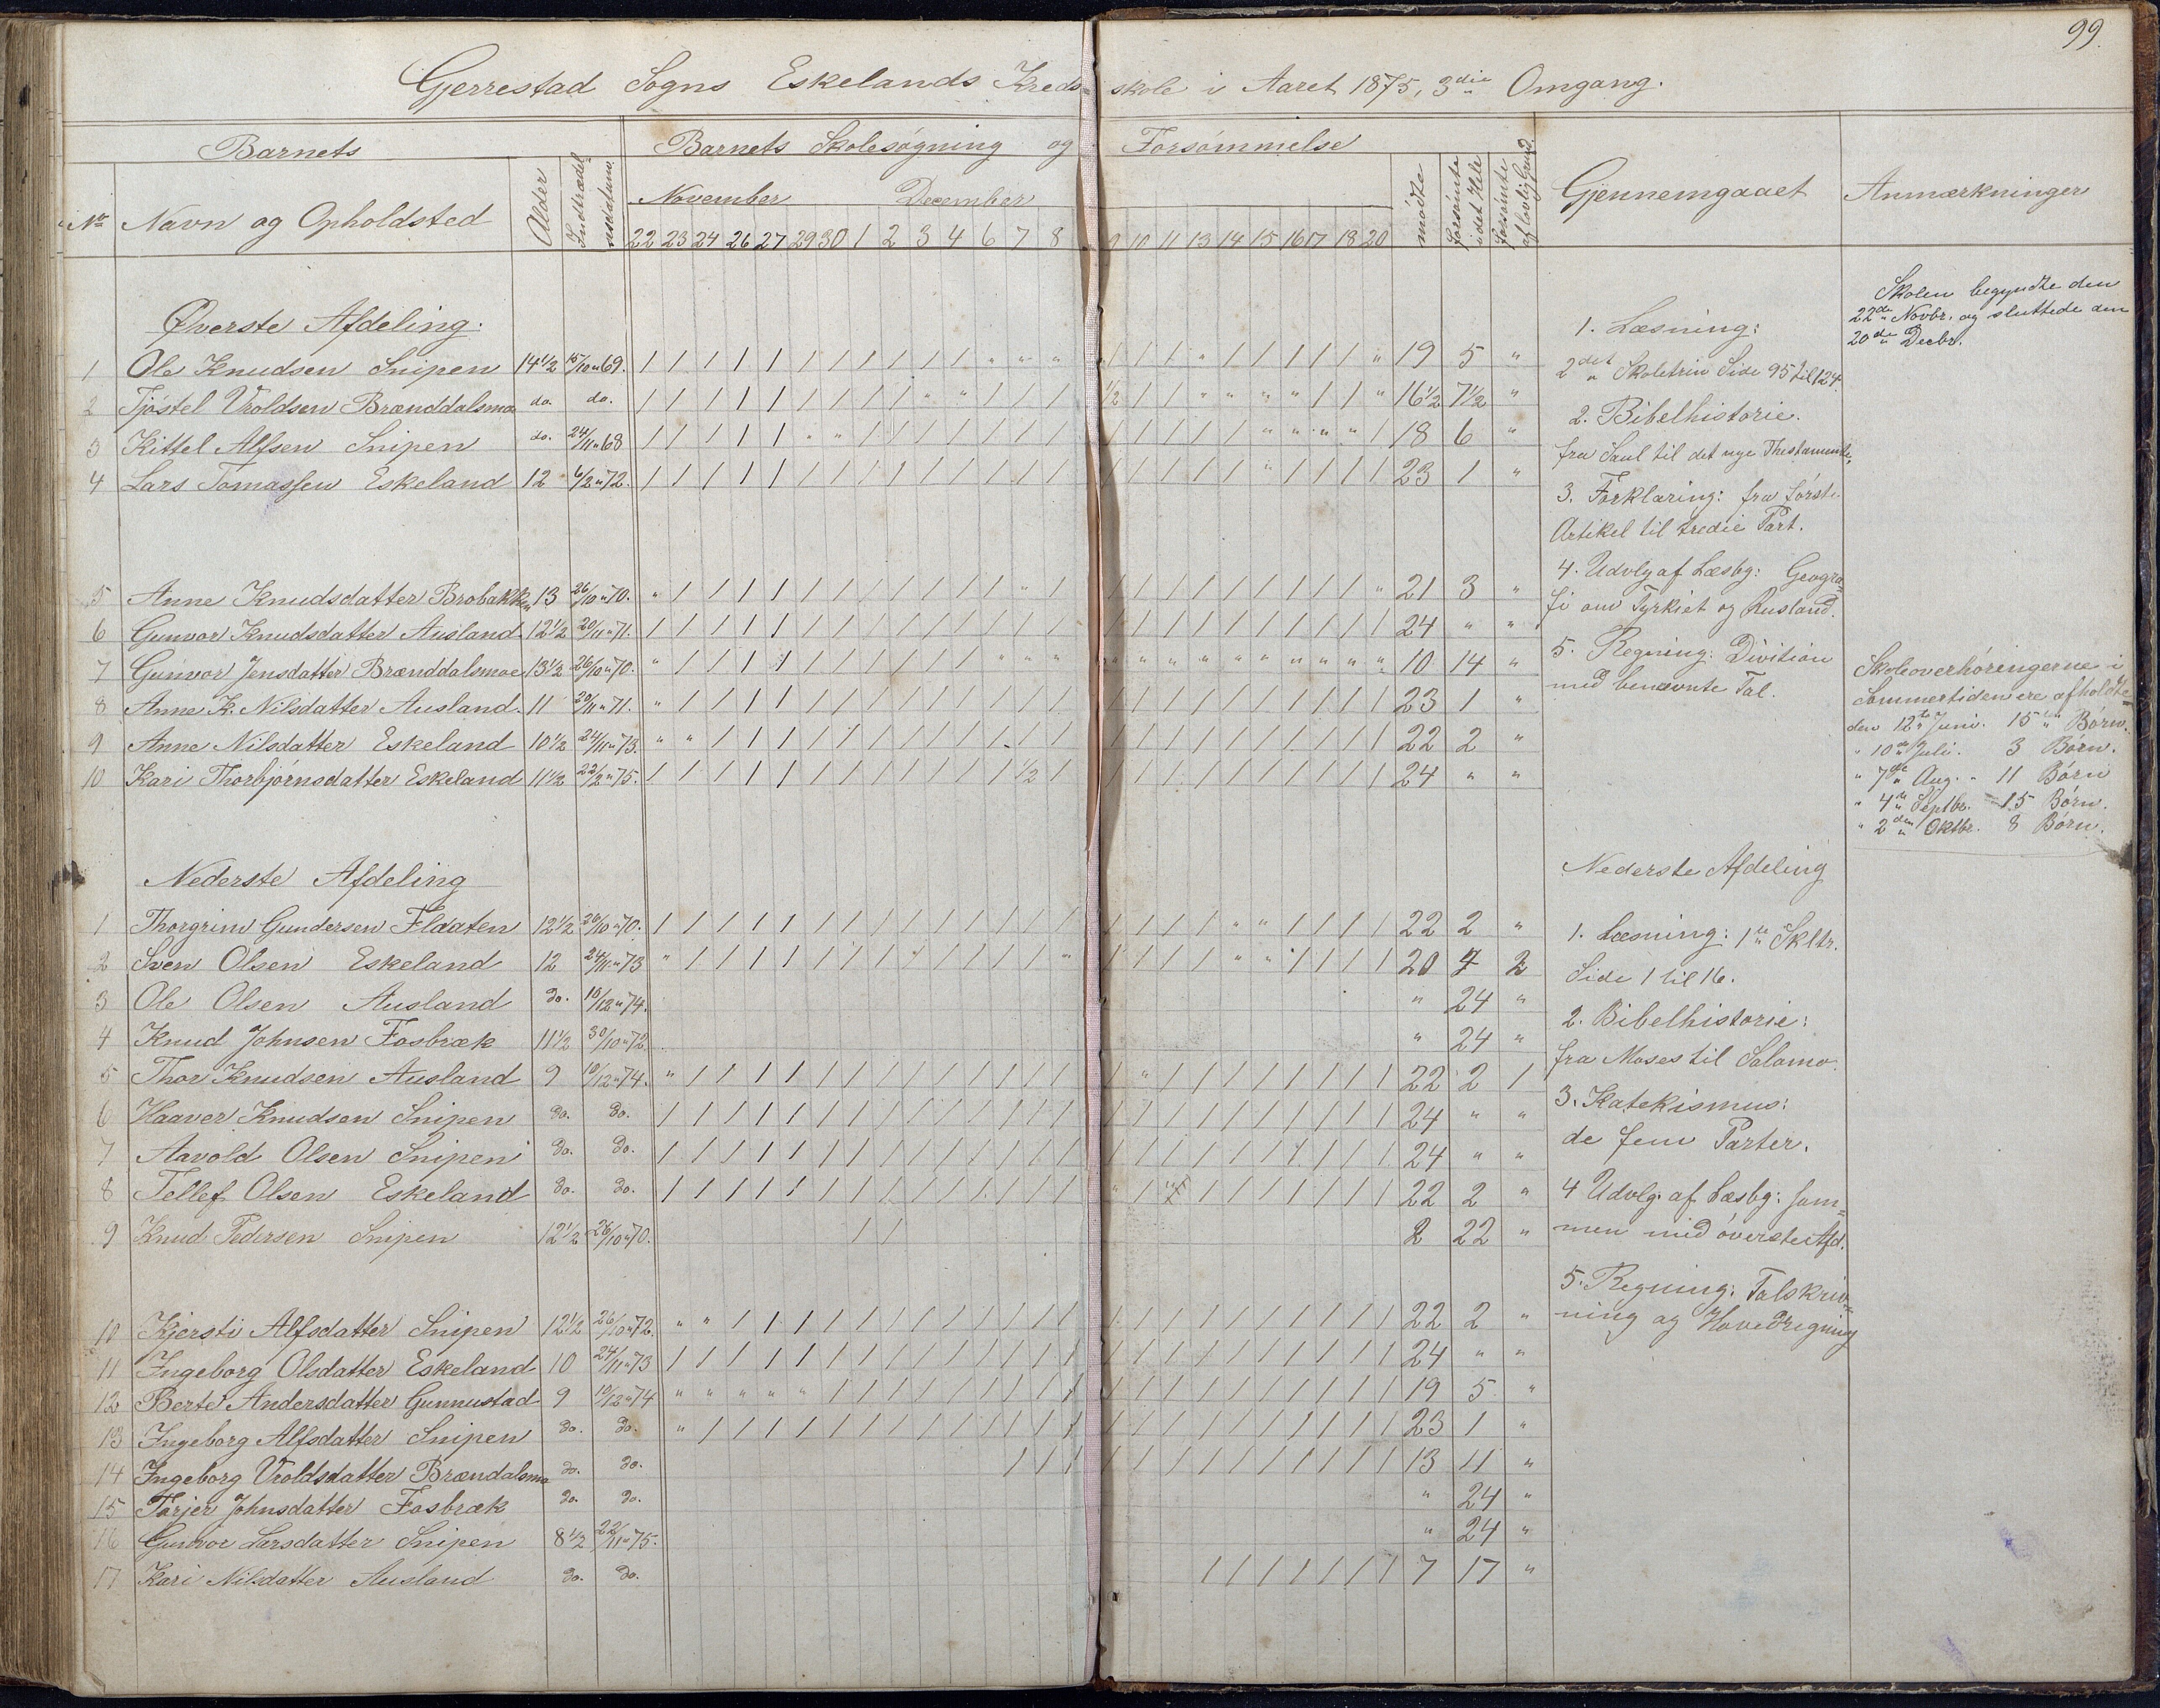 99.
Gjerrestad Sogns Eskelands Kreds= skole i Aaret 1875, 3die Omgang.
Barnets Barnets Skolesøgning og Forsømmelse
No Navn og Opholdsted Alder Indtrædel= sesdatum November December mødte forsømte i det Hele forsømte af lovlig Grund Gjennemgaaet Anmærkninger
22 23 24 26 27 29 30 1 2 3 4 6 7 8 9 10 11 13 14 15 16 17 18 20
Øverste Afdeling.
1 Ole Knudsen Snipen 14½ 15/10 " 69. / / / / / / / / / / / " " " " / / " / / / / / " 19 5 "
2 Tjøstel Vroldsen Brænddalsmo do. do. / / / / / / / / / " " / / / ½ / / " " " " / / " 16½ 7½ "
3 Kittel Alfsen Snipen do. 24/11 " 68 / / / / / " " / / / / / / / / / / / / " " " " / 18 6 "
4 Lars Tomassen Eskeland 12 6/2 " 72. / / / / / / / / / / / / / / / / / / / " / / / / 23 1 "
5 Anne Knudsdatter Brobakken 13 26/10 " 70. " / / / / / / / / / / / " / / / / / / / / / / " 21 3 "
6 Gunvor Knudsdatter Ausland 12½ 20/11 " 71. / / / / / / / / / / / / / / / / / / / / / / / / 24 " "
7 Gunvor Jensdatter Brænddalsmoe 13½ 26/10 " 70. " / / / / / / / / / / " " " " " " " " " " " " " 10 14 "
8 Anne K. Nilsdatter Ausland. 11 20/11 " 71. " / / / / / / / / / / / / / / / / / / / / / / / 23 1 "
9 Anne Nilsdatter Eskeland 10½ 24/11 " 73. " " / / / / / / / / / / / / / / / / / / / / / / 22 2 "
10 Kari Thorbjørnsdatter Eskeland 11½ 22/2 " 75. / / / / / / / / / / / / ½ / / / / / / / / / / / 24 " "
Nederste Afdeling
1 Thorgrim Gundersen Fldaten 12½ 26/10 " 70. / / / / / / / / / / / / / / / / / / " " / / / / 22 2 "
2 Sven Olsen Eskeland 12 24/11 " 73 " / / / / / / / / / / / / " / / / / " " / / / / 20 4 2
3 Ole Olsen Ausland do. 10/12 " 74. " 24 "
4 Knud Johnsen Fosbræk 11½ 30/10 " 72. " 24 "
5 Thor Knudsen Ausland 9 10/12 " 74. " / / / / / / / / / / / / / / " / / / / / / / / 22 2 1
6 Haaver Knudsen Snipen do. do. / / / / / / / / / / / / / / / / / / / / / / / / 24 " "
7 Aavold Olsen Snipen do. do. / / / / / / / / / / / / / / / / / / / / / / / / 24 " "
8 Tellef Olsen Eskeland do. do. / / / / / / / / / / / / / / " / / / / / / / / 22 2 "
9 Knud Pedersen Snipen 12½ 26/10 " 70. / / 2 22 "
10 Kjersti Alfsdatter Snipen 12½ 26/10 " 72. " " / / / / / / / / / / / / / / / / / / / / / / 22 2 "
11 Ingeborg Olsdatter Eskeland 10 24/11 " 73 / / / / / / / / / / / / / / / / / / / / / / / / 24 " "
12 Berte Andersdatter Gunnustad 9 10/12 " 74 " " " " " / / / / / / / / / / / / / / / / / / / 19 5 "
13 Ingeborg Alfsdatter Snipen do. do. " / / / / / / / / / / / / / / / / / / / / / / / 23 1 "
14 Ingeborg Vroldsdatter Brændalsmo do. do. / / / / / / / / / / / / / 13 11 "
15 Tarjer Johnsdatter Fosbræk do. do. " 24 "
16 Gunvor Larsdatter Snipen 8½ 22/11 " 75. " 24 "
17 Kari Nilsdatter Ausland do. do. / / / / / / / 7 17 "
1. Læsning:
2det Skoletrin Side 95 til 124.
2. Bibelhistorie.
fra Saul til det nye Thestamente,
3. Forklaring: fra første
Artikel til tredie Part.
4. Udvlg af Læsbg: Geogra=
fi om Tyrkiet og Rusland.
5. Regning: Division
med benævnte Tal.
Nederste Afdeling
1. Læsning: 1te Skltr.
Side 1 til 16.
2. Bibelhistorie:
fra Moses til Salomo.
3. Katekismus:
de fem Parter.
4 Udvlg. af Læsbg: sam=
men med øverste Afd.
5. Regning: Talskriv=
ning og Hovedregning
Skolen begyndte den
22de Novbr. og sluttede den
20de Decbr.
Skoleoverhøringerne i
Sommertiden ere afholdte
den 12te Juni. 15 " Børn.
" 10de Juli. 3 Børn.
" 7de Aug. " 11 Børn
" 4de Septbr. 15 Børn.
" 2den Oktbr. 8 Børn.